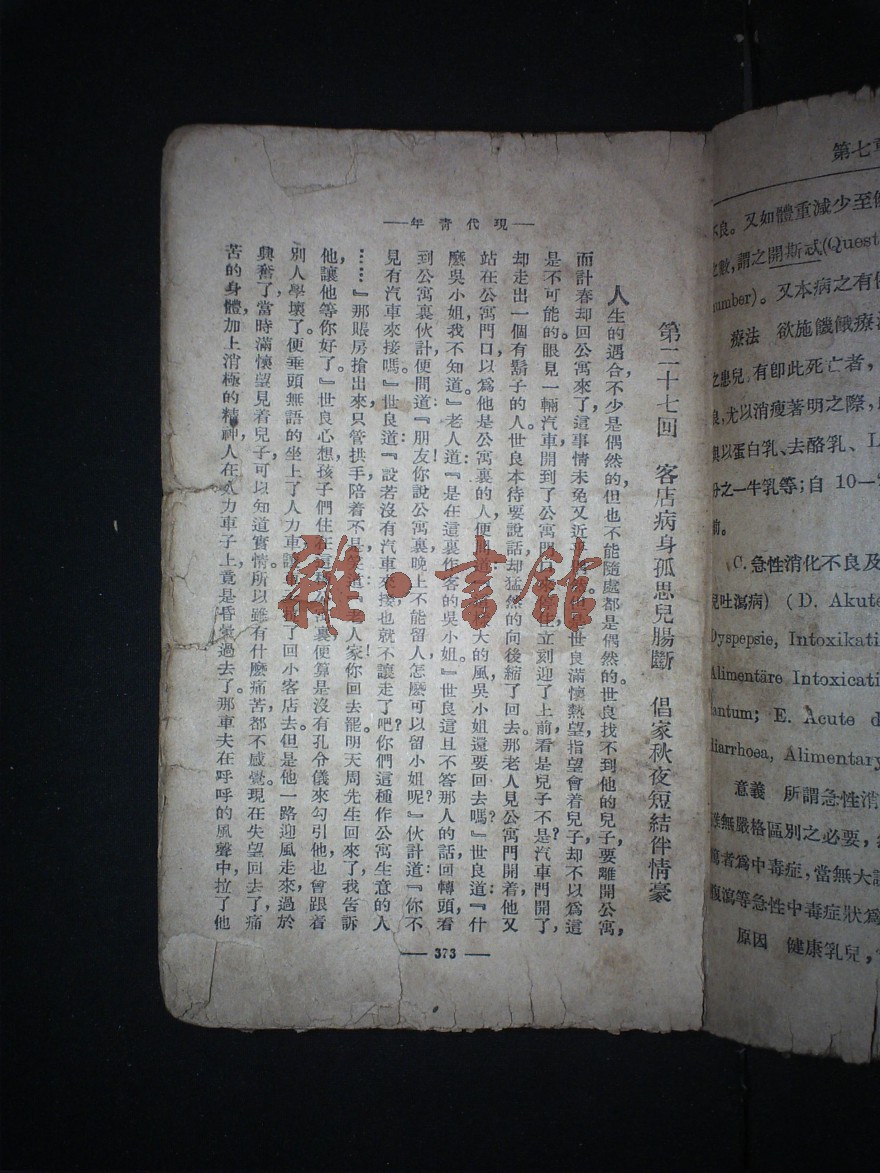 現代青年
第二十七回 客店病身孤思兒腸斷 倡家秋夜短結伴情豪
人生的遇合,不少是偶然的,但也不能隨處都是偶然的。世良找不到他的兒子,要離開公寓,
而計春却回公寓來了,這事情未免又近
世良滿懷熱望,指望會着兒子,却不以爲這
是不可能的。眼見一輛汽車,開到了公寓門
立刻迎了上前,看是兒子不是。汽車門開了,
却走出一個有鬍子的人。世良本待要說話,却猛然的向後縮了回去。那老人見公寓門開着,他又
站在公寓門口,以爲他是公寓裏的人,便問道:
大的風,吳小姐還要回去嗎?』世良道:『什
麼吳小姐,我不知道。』老人道:『是在這裏作客的吳小姐。』世良這且不答那人的話,回轉頭看
到公寓裏伙計,便問道:『朋友!你說公寓裏,晚上不能留人,怎麼可以留小姐呢?』伙計道:『你不
見有汽車來接嗎。』世良道:『設若沒有汽車來接,也就不讓走了吧?你們這種作公寓生意的人
……』那賬房搶出來,只管拱手陪着不是,笑道:『老人家!你回去罷,明天周先生回來了,我告訴
他,讓他等你好了。』世良心想,孩子們住在這種公寓裏,便算是沒有孔令儀來勾引他,也會跟着
別人學壞了。便垂頭無語的坐上了人力車,
了回小客店去。但是他一路迎風走來,過於
興奮了,當時滿懷望見着兒子,可以知道實情,所以雖有什麼痛苦,都不感覺。現在失望回去了,痛
苦的身體,加上消極的精神,人在人力車子上,竟是昏氣過去了。那車夫在呼呼的風聲中,拉了他
373
雜·書館
第七章
不良。又如體重減少至
之數,謂之開斯忒(Quest
number)。又本病之有
療法 欲施饑餓療
之患兒,有卽此死亡者,
良,尤以消瘦著明之際,
與以蛋白乳、去酪乳、
分之一牛乳等;自 10—
前。
C. 急性消化不良及
兒吐瀉病) (D. Akute
Dyspepsie, Intoxikati
Alimentäre Intoxicati
fantum; E. Acute d
diarrhoea, Alimentary
意義 所謂急性消
無嚴格區別之必要,
者爲中毒症,當無大
瀉等急性中毒症狀爲
原因 健康乳兒,